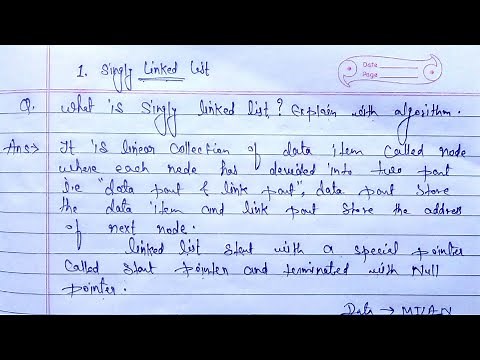 Date
Page
1. Singly Linked list
Q. What is Singly linked list? Explain with algorithm.
Ans→ It is linear collection of data item called node
where each node has devided into two part
i.e "data part & link part", data part store
the data item and link part store the address
of next node.
linked list start with a special pointer
called start pointer and terminated with Null
pointer.
Data →